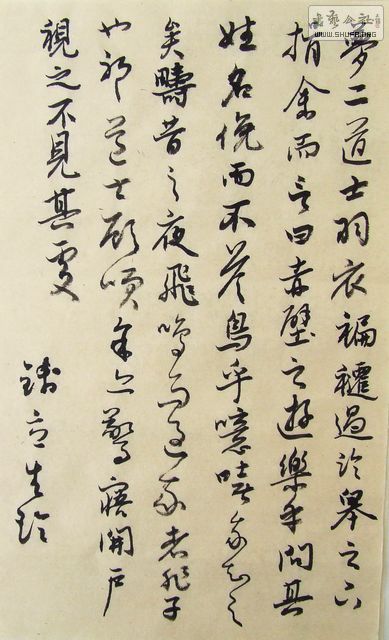 书艺公社
WWW.SHUFA.ORG
夢二道士羽衣蹁躚過臨皋之下
揖余而言曰赤壁之遊樂乎問其
姓名俛而不答烏乎噫嘻我知之
矣疇昔之夜飛鳴而過我者非子
也耶道士顧余亦驚寤開戶
視之不見其處